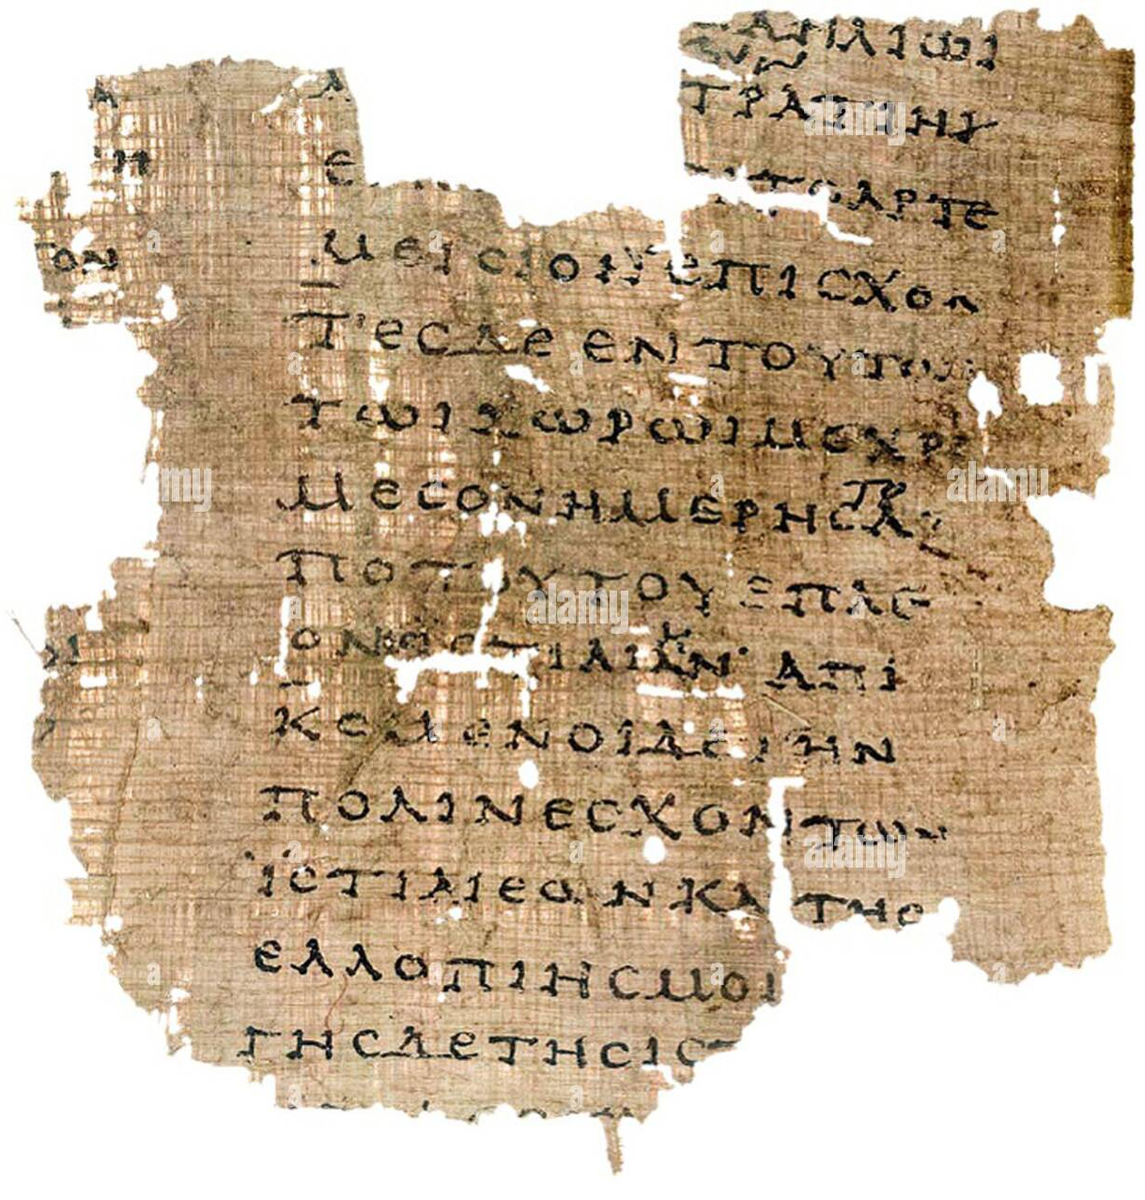 ΗΛΙΩΙ
ΤΡΑΤΙΗΝ
ΤΟΑΡΤΕ
ΤΟΝ
ΜΕΙϹΙΟΝ ΕΠΙϹΧΟΝ
ΤΕϹΔΕ ΕΝ ΤΟΥΤΩΙ
ΤΩΙ ΧΩΡΩΙ ΜΕΧΡΙ
ΜΕϹΟΝ ΗΜΕΡΗϹ ΤΟ Α
ΠΟ ΤΟΥΤΟΥ ΕΠΛΕ
ΟΝ ΕϹ ΙϹΤΙΑΙΑΝ ΑΠΙ
ΚΟΜΕΝΟΙ ΔΕ ΤΗΝ
ΠΟΛΙΝ ΕϹΧΟΝ ΤΩΝ
ΙϹΤΙΑΙΕΩΝ ΚΑΙ ΤΗϹ
ΕΛΛΟΠΙΗϹ ΜΟΙ
ΓΗϹ ΔΕ ΤΗϹ ΙϹΤ